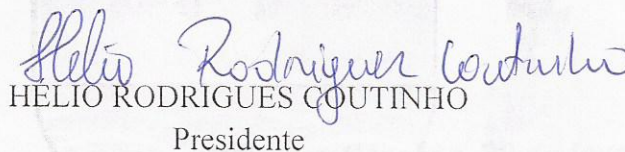 Helio Rodrigues Coutinho
HELIO RODRIGUES COUTINHO
Presidente